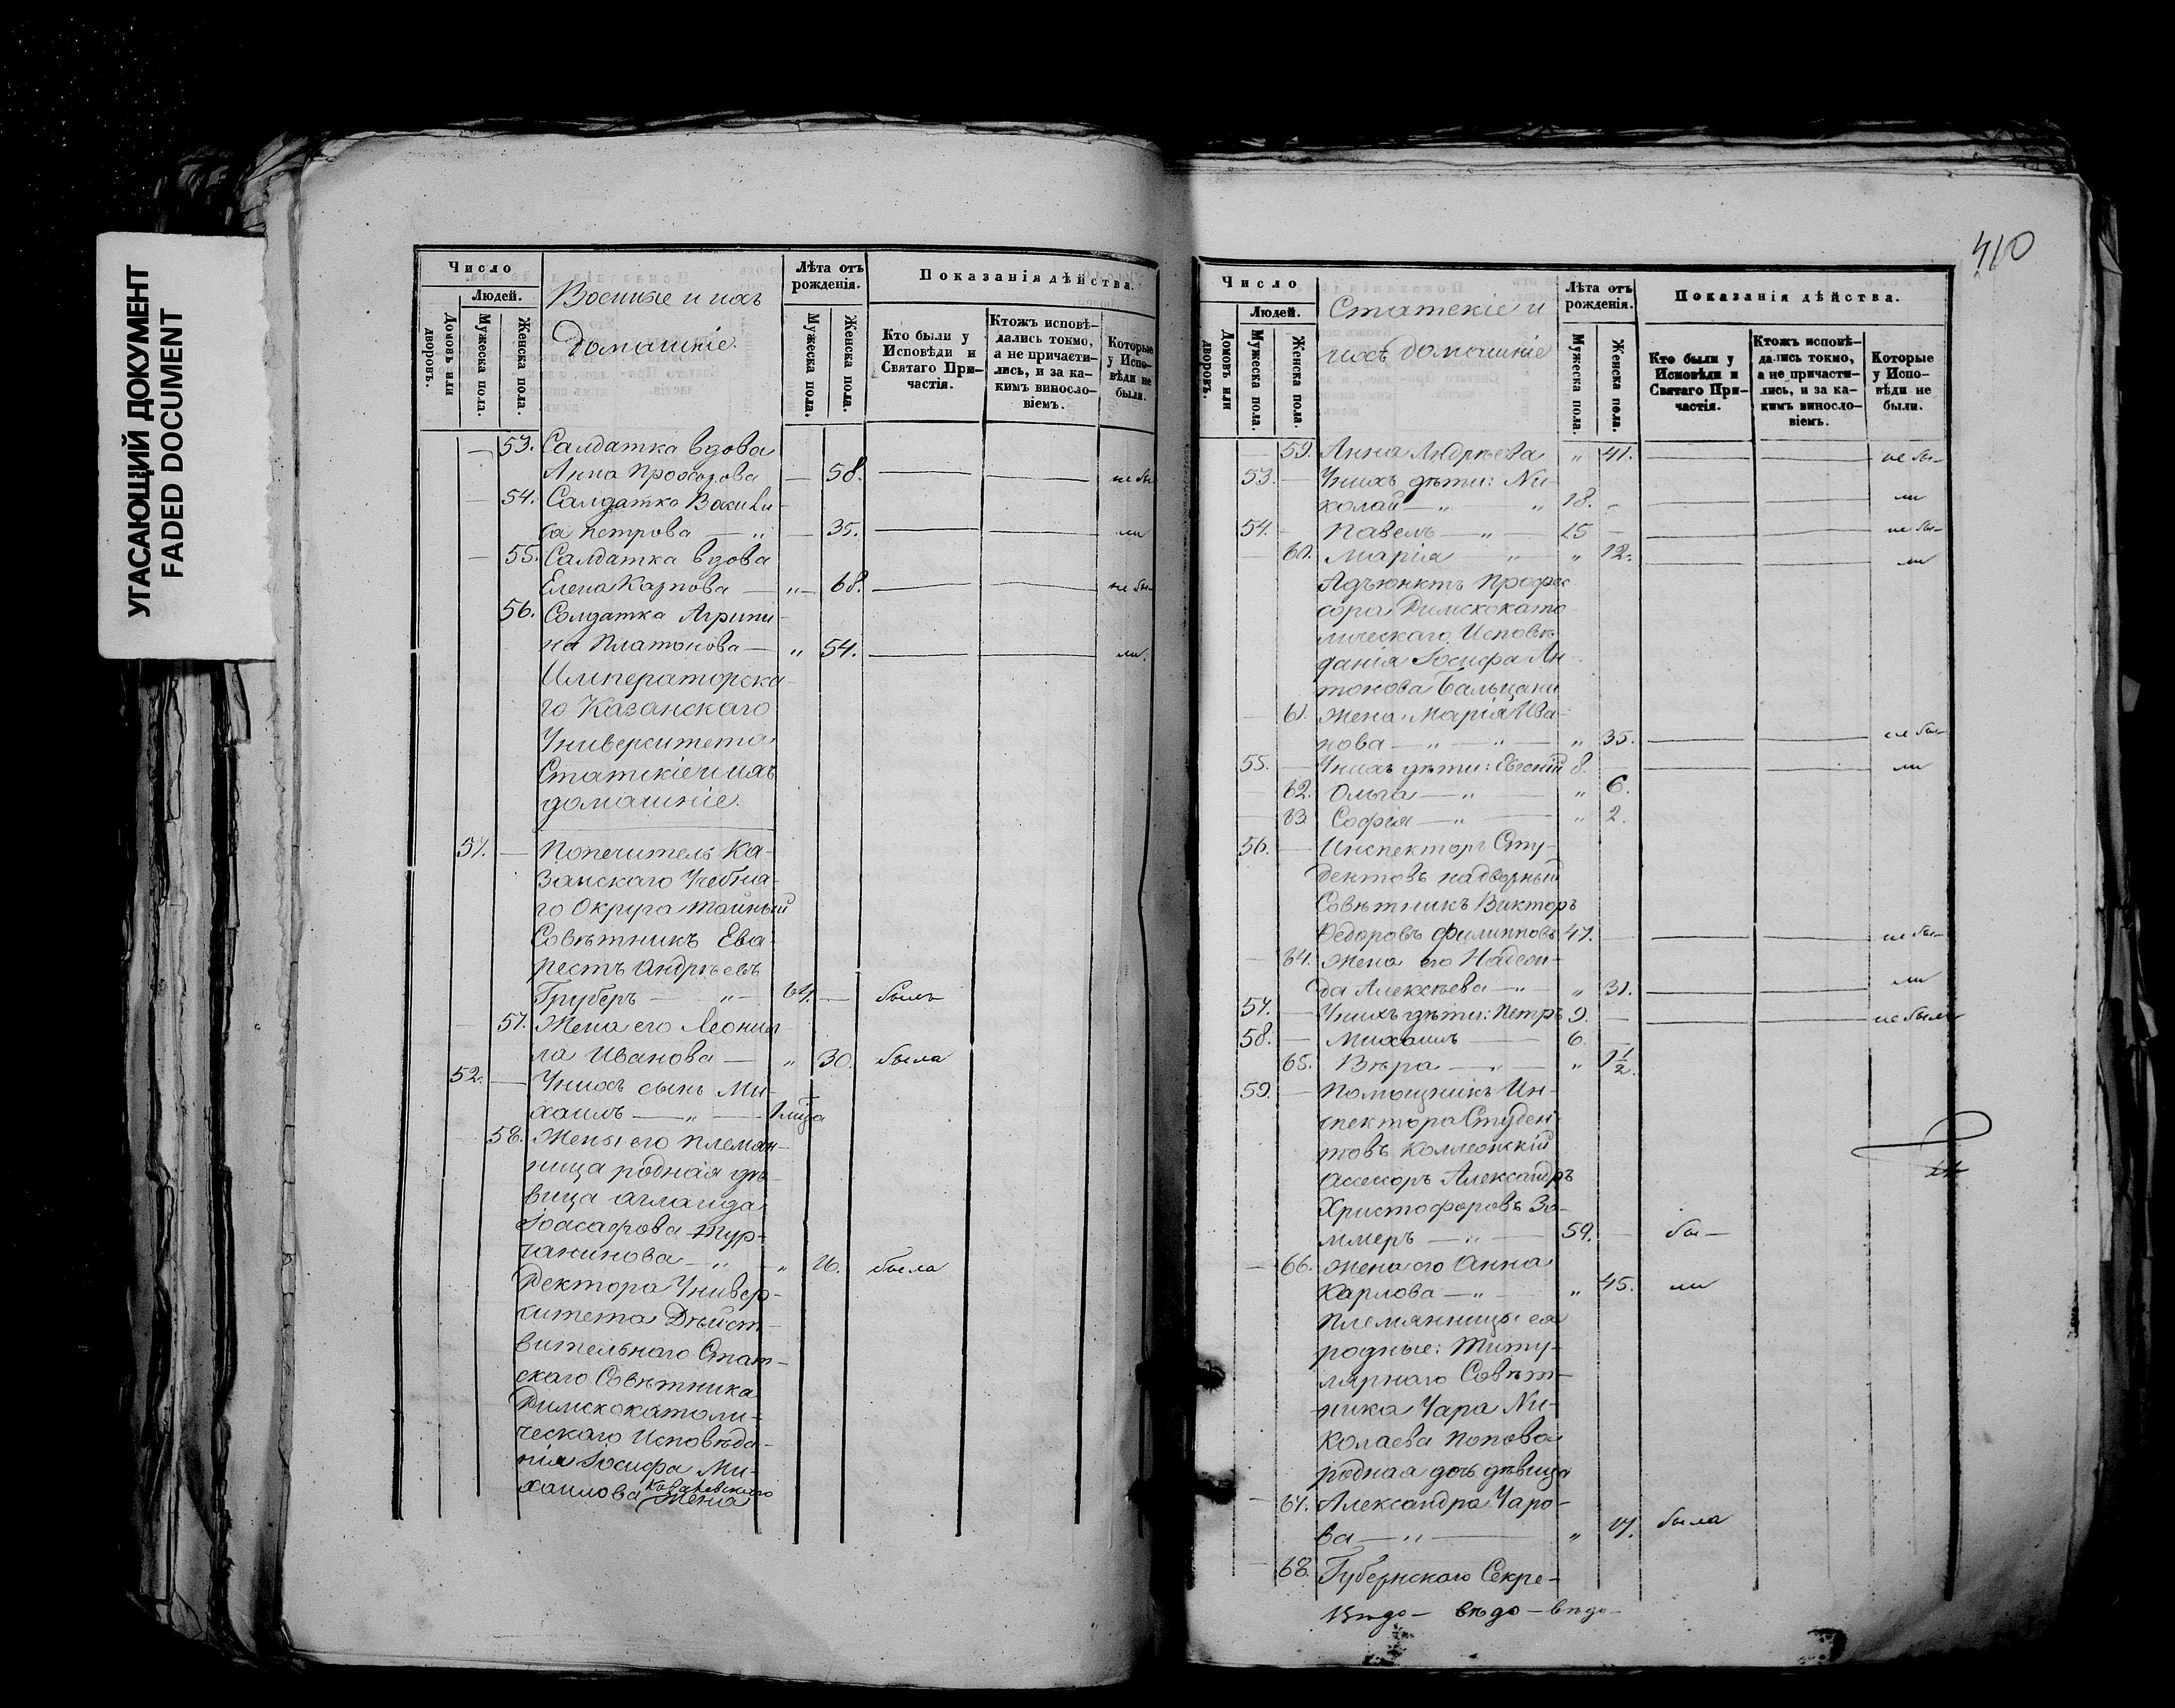 УГАСАЮЩИЙ ДОКУМЕНТ
FADED DOCUMENT
Число
Людей.
Домовъ или дворовъ.
Мужеска пола.
Женска пола.
Военные и ихъ
домашніе.
Лѣта отъ рожденія.
Мужеска пола.
Женска пола.
Показанія дѣйства.
Кто были у Исповѣди и Святаго При-частія.
Ктожъ исповѣ-дались токмо, а не причасти-лись, и за ка-кимъ винословіемъ.
Которые у Испо-вѣди не были.
— 53. Салдатка вдова
Анна Прохорова — 58. не бы
— 54. Салдатка Васили-
са Петрова — „ — 35. ли
— 55. Салдатка вдова
Елена Карпова — „ — 68. не бы-
56. Солдатка Агрипи-
на Платонова — „ 54. ли.
Императорска-
го Казанскаго
Университета
Статскіе и ихъ
домашніе.
51. — Попечитель Ка-
занскаго Учебна-
го Округа тайный
Совѣтникъ Ева-
рестъ Андрѣевъ
Груберъ — „ — 64. — былъ
57. Жена его Леони-
ла Иванова — „ 30. была
52. — У нихъ сынъ Ми-
хаилъ — „ — 1
58. Жены его племян-
ница родная дѣ-
вица Аглаида
Іоасафова Тур-
чанинова — „ — „ 26. была
Ректора Универ-
ситета Дѣйст-
вительнаго Стат-
скаго Совѣтника
Римскокатоли-
ческаго Исповѣда-
нія Іосифа Ми-
хаилова Ковалевскаго жена
410
Число
Людей.
Домовъ или дворовъ.
Мужеска пола.
Женска пола.
Статскіе и
ихъ домашніе
Лѣта отъ рожденія.
Мужеска пола.
Женска пола.
Показанія дѣйства.
Кто были у Исповѣди и Святаго При-частія.
Ктожъ исповѣ-дались токмо, а не причасти-лись, и за ка-кимъ винословіемъ.
Которые у Испо-вѣди не были.
— 59. Анна Андрѣева „ 41. не бы-
53. — У нихъ дѣти: Ни-
колай — „ — „ 18. - ли
54. — Павелъ — „ — 15 — не бы-
— 60. Марія — „ — „ 12. ли
Адъюнктъ Профес
сора Римскокато-
лическаго Исповѣ-
данія Іосифа Ан-
тонова Больцани
— 61. жена Марія Ива-
нова — „ — „ — „ 35. не бы-
55. — У нихъ дѣти: Евгеній 8. — ли
— 62. Ольга — „ — „ 6.
— 63. Софія — „ — „ 2.
56. — Инспекторъ Сту-
дентовъ надворный
Совѣтникъ Викторъ
Ѳедоровъ Филипповъ 47. — не бы-
— 64. Жена его Надеж-
да Алексѣева — „ — „ 31. ли
57. — У нихъ дѣти: Петръ 9. — не были
58. — Михаилъ — 6. —
— 65. Вѣра — „ — „ 1 1/2.
59. — Помощникъ Ин-
спектора Студен-
товъ Коллежскій
Ассесоръ Александръ
Христофоровъ Зо-
ммеръ — „ — 59. — бы—
— 66. Жена его Анна
Карлова — „ — „ 45. ли
Племянницы ея
родные: Титу-
лярнаго Совѣт-
ника Чара Ни-
колаева Попова
родная дочь дѣвица
— 67. Александра Чаро-
ва — „ — „ 17. была
— 68. Губернскаго Секре-
Вѣдо— вѣдо—вѣдо—